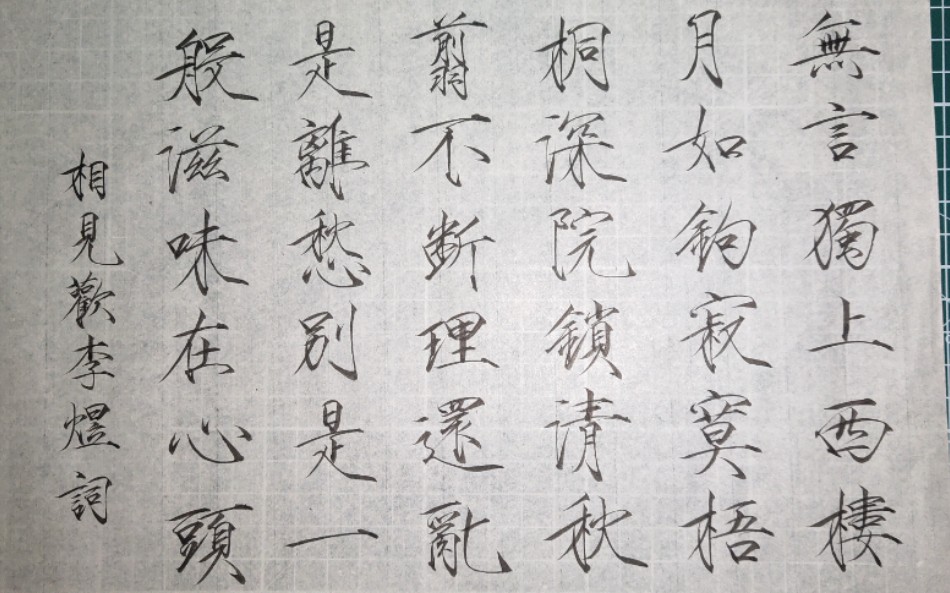 無言獨上西樓
月如鉤寂寞梧
桐深院鎖清秋
翦不斷理還亂
是離愁別是一
般滋味在心頭
相見歡李煜詞